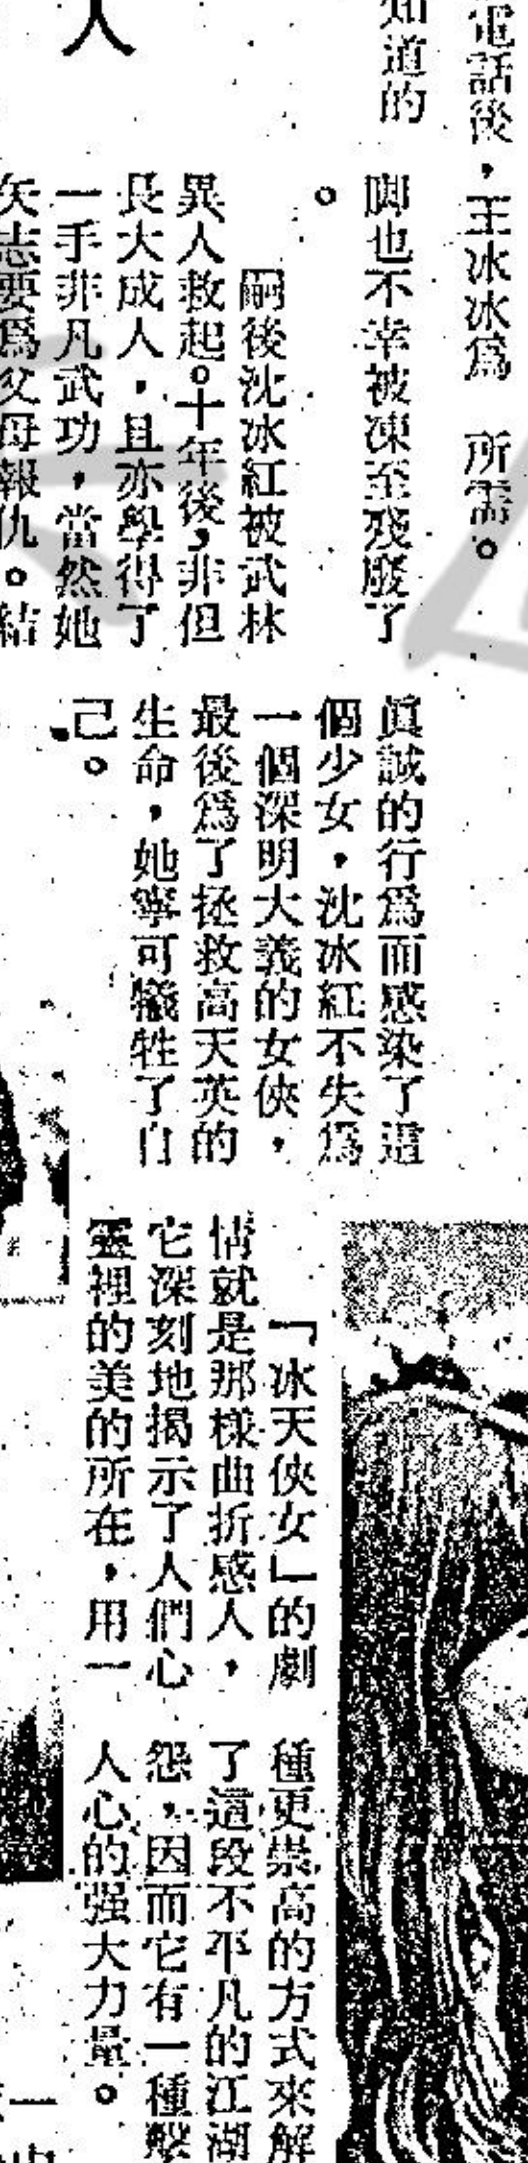 人
電話後，王冰冰爲
知道的
所需。
脚也不幸被凍至殘廢了
。
嗣後沈冰紅被武林
異人救起。十年後，非但
長大成人，且亦學得了
一手非凡武功，當然她
矢志要爲父母報仇。結
眞誠的行爲而感染了這
個少女，沈冰紅不失爲
一個深明大義的女俠，
最後爲了拯救高天英的
生命，她寧可犧牲了自
己。
「冰天俠女」的劇
情就是那樣曲折感人，
它深刻地揭示了人們心
靈裡的美的所在，用一
種更崇高的方式來解
了這段不平凡的江湖
怨，因而它有一種擊
人心的强大力量。
一